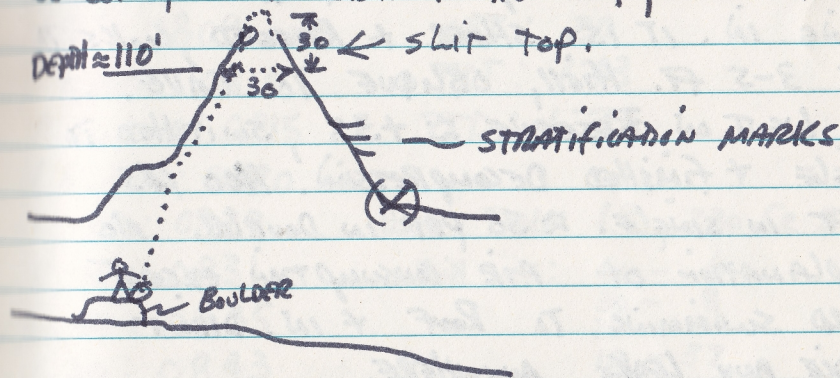 DEPTH ≈ 110'
30
SLIT TOP.
30
STRATIFICATION MARKS
BOULDER